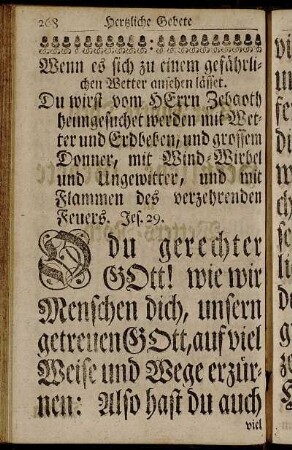 268 Hertzliche Gebete
Wenn es sich zu einem gefährli-
chen Wetter ansehen lässet.
Du wirst vom HErrn Zebaoth
heimgesuchet werden mit Wet-
ter und Erdbeben, und grossem
Donner, mit Wind-Wirbel
und Ungewitter, und mit
Flammen des verzehrenden
Feuers. Jes. 29.
O du gerechter
GOtt! wie wir
Menschen dich, unsern
getreuen GOtt, auf viel
Weise und Wege erzür-
nen: Also hast du auch
viel